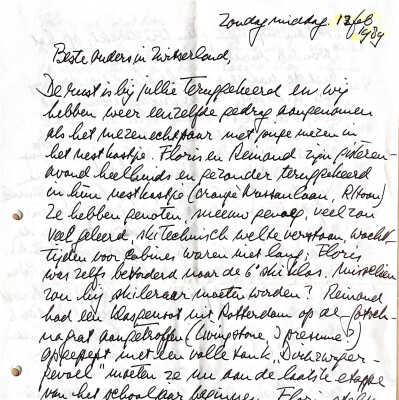 Zondagmiddag 12 feb
1989
Beste ouders in Zwitserland,
De rust is bij jullie teruggekeerd en wij
hebben weer eenzelfde gedrag aangenomen
als het mezenechtpaar met jonge mezen in
het nestkastje. Floris en Reinoud zijn gisteren-
avond heelhuids en gezonder teruggekeerd
in hun nestkastje (Oranje Nassaulaan,
Ze hebben genoten, sneeuw genoeg, veel zon
veel geleerd, skitechnisch wel te verstaan, wacht-
tijden voor cabines waren niet lang; Floris
was zelfs bevorderd naar de 6e skiklas. Misschien
zou hij skileraar moeten worden? Reinoud
had een klasgenoot uit Rotterdam op de
nagrat aangetroffen (Livingstone, I presume?)
opgepept met een volle tank
gevoel" moeten ze nu aan de laatste etappe
van het schooljaar beginnen. Floris